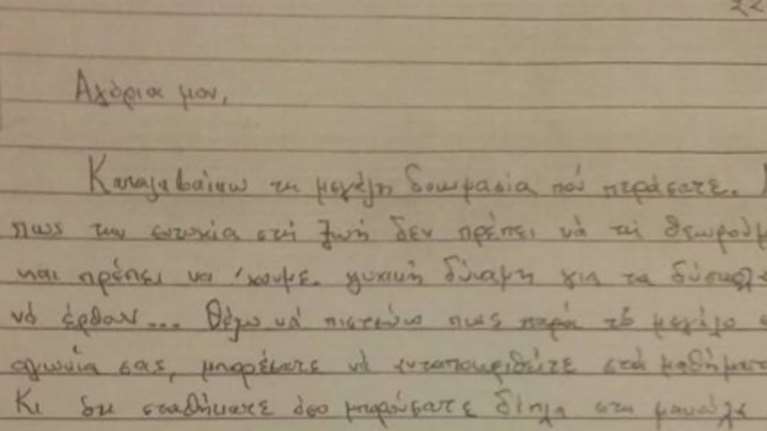 Αγόρια μου,
Καταλαβαίνω τη μεγάλη δοκιμασία πού περάσατε.
πως την ευτυχία στή ζωή δεν πρέπει νά τή θεωρούμ
και πρέπει να 'χουμε ψυχική δύναμη για τα δύσκολ
νά έρθουν... Θέλω νά πιστεύω πως παρά τό μεγάλο
αγωνία σας, μπορέσατε νά ανταποκριθείτε στά μαθήματ
Κι αν σταθήκατε όσο μπορούσατε δίπλα στη μανούλα